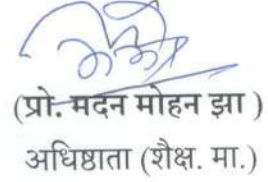 (प्रो. मदन मोहन झा )
अधिष्ठाता (शैक्ष. मा.)